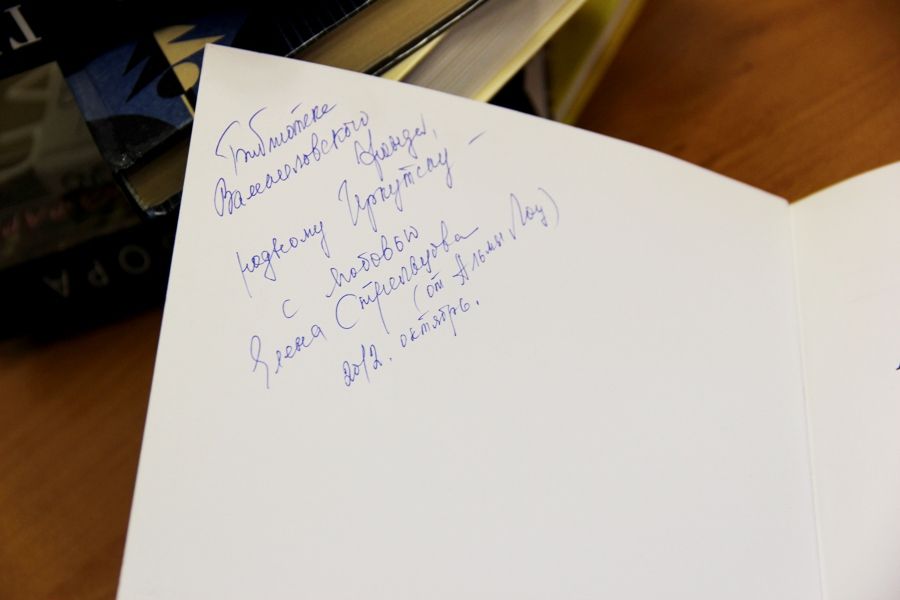 Библиотеке
Вампиловского
Фонда,
родному Иркутску –
с любовью
Елена Стрельцова
(от Альмы Лоу)
2012. октябрь.